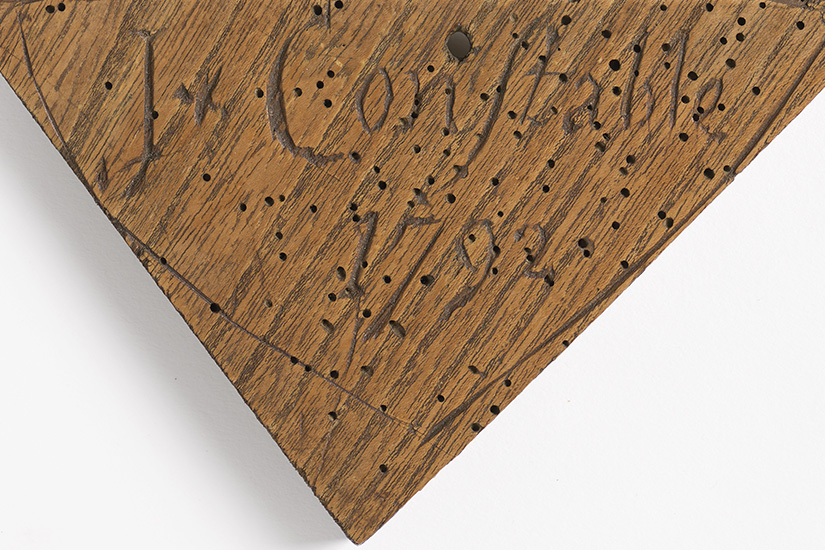 J* Conſtable
1792